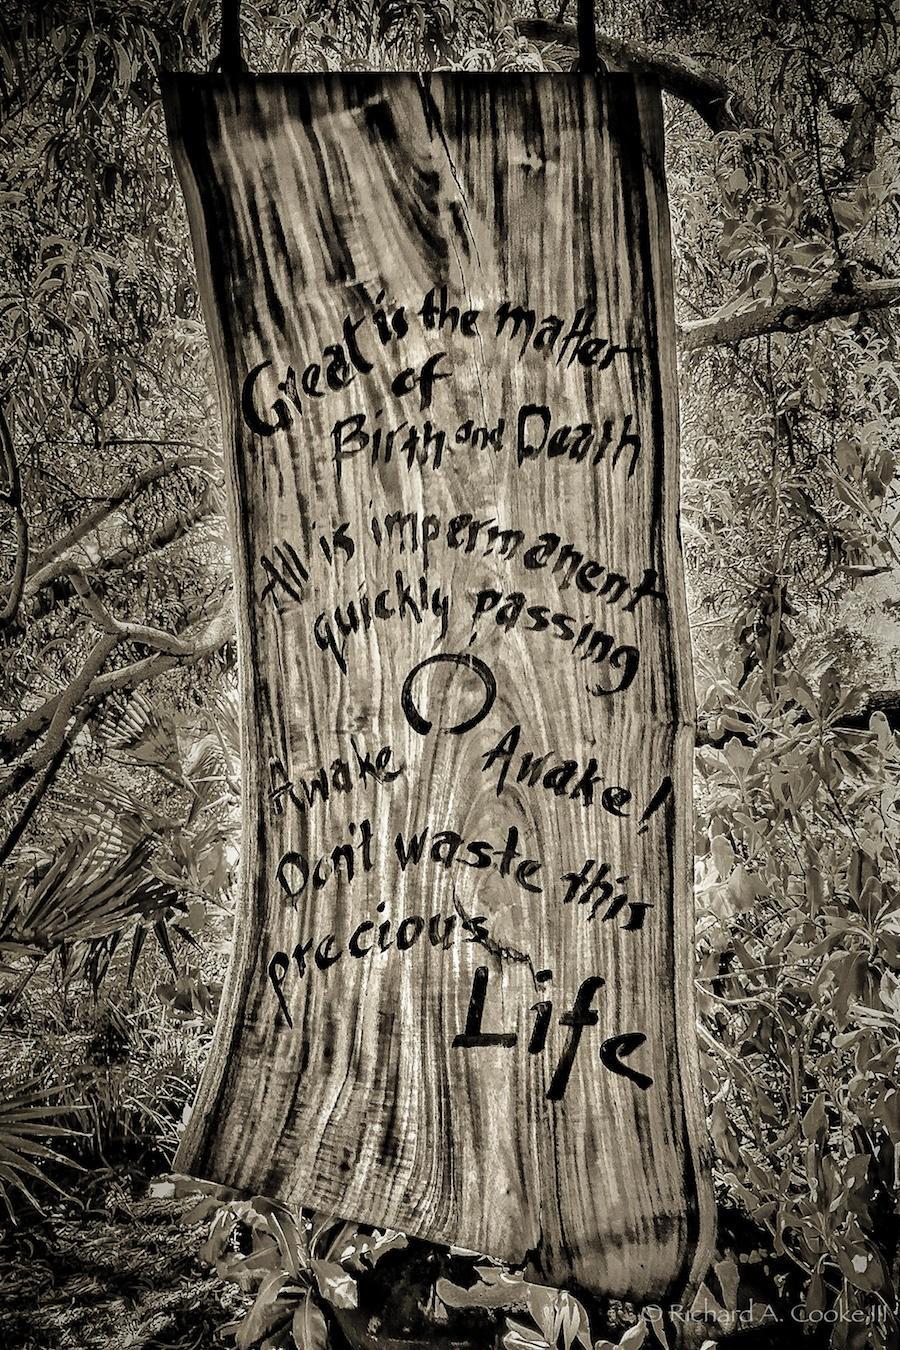 Great is the matter
of
Birth and Death
All is impermanent
quickly passing
Awake Awake!
Don't waste this
precious
Life
© Richard A. Cooke III